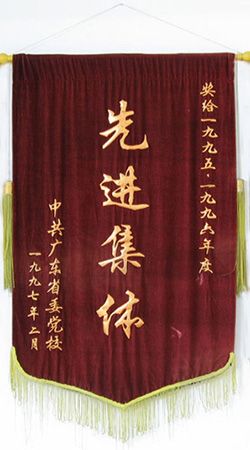 奖给一九九五·一九九六年度
先进集体
中共广东省委党校
一九九七年二月